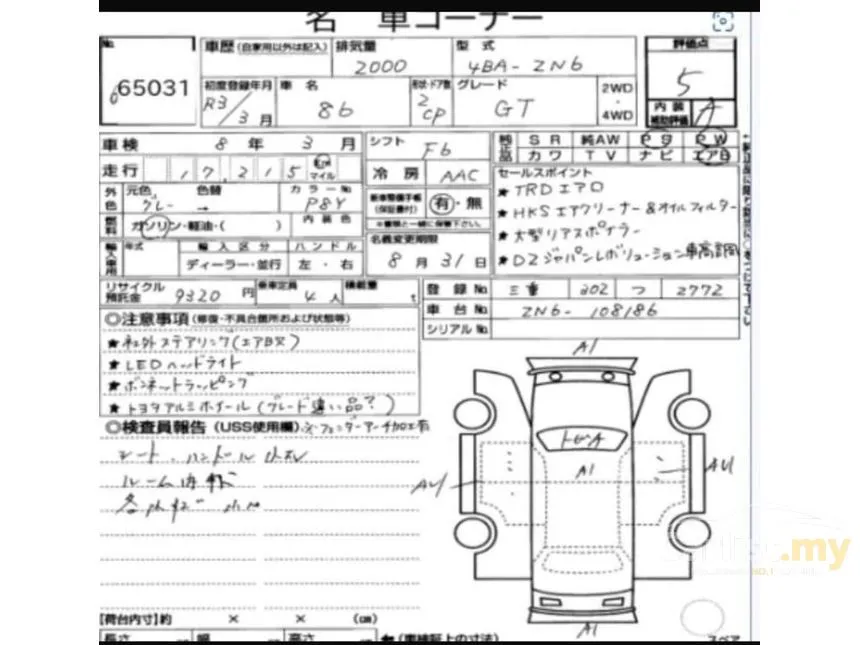 名 車コーナー
No. 65031
車歴(自家用以外は記入) 排気量 2000 型式 4BA-ZN6
評価点 5
初度登録年月 R3/3月 車名 86 形状・ドア数 2 CP グレード GT 2WD・4WD
内装補助評価 A
車検 8年 3月 シフト F6
純正品 SR 純AW PS PW
カワ TV ナビ エアB
走行 17,215 km マイル 冷房 AAC
セールスポイント
★TRDエアロ
外色 元色 グレー 色替 → カラーNo. P8Y 内装色
新車整備手帳(保証書付) 有・無
★HKSエアクリーナー&オイルフィルター
燃料 ガソリン・軽油・( )
★大型リアスポイラー
名義変更期限 8月31日
★DZジャパンレボリューション車高調
輸入車用 年式 輸入区分 ハンドル
ディーラー・並行 左・右
リサイクル預託金 9320円 乗車定員 4人 積載量 t
登録No. 三重 302 つ 2772
車台No. ZN6-108186
シリアルNo.
◎注意事項(修復・不具合箇所および状態等)
★社外ステアリング(エアB欠)
★LEDヘッドライト
★ボンネットラッピング
★トヨタアルミホイール(グレード違い品?)
◎検査員報告(USS使用欄) ☆フェンダーアーチ加工有
シート、ハンドル
ルーム内
A1
A1
AU
AU
A1
【荷台内寸】約 × × (cm)
長さ 幅 高さ (車検証上の寸法) スペア
Carlist.my
NO.1